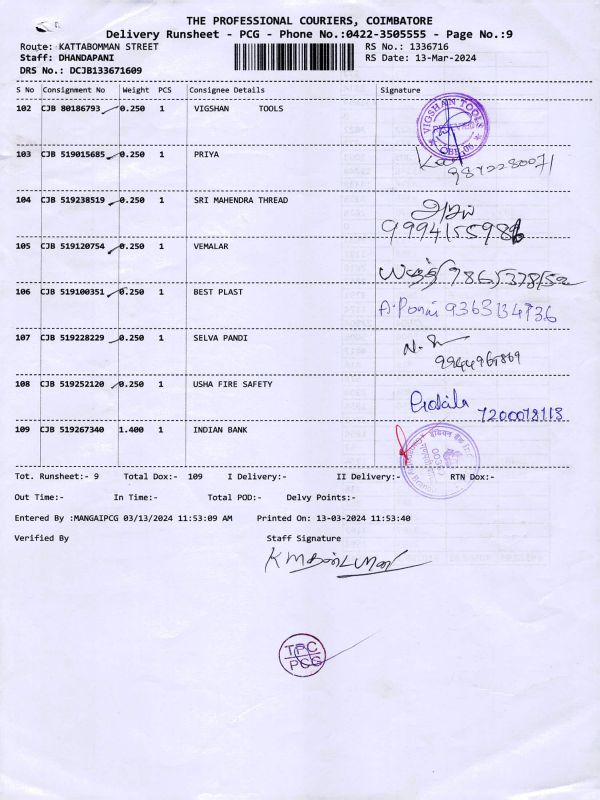 THE PROFESSIONAL COURIERS, COIMBATORE
Delivery Runsheet - PCG - Phone No.:0422-3505555 - Page No.:9
Route: KATTABOMMAN STREET
RS No.: 1336716
Staff: DHANDAPANI
RS Date: 13-Mar-2024
DRS No.: DCJB133671609
S No Consignment No Weight PCS Consignee Details Signature
102 CJB 80186793 0.250 1 VIGSHAN TOOLS
VIGSHAN TOOLS
103 CJB 519015685 0.250 1 PRIYA
9842280071
104 CJB 519238519 0.250 1 SRI MAHENDRA THREAD
105 CJB 519120754 0.250 1 VEMALAR
106 CJB 519100351 0.250 1 BEST PLAST
107 CJB 519228229 0.250 1 SELVA PANDI
108 CJB 519252120 0.250 1 USHA FIRE SAFETY
7200078118
109 CJB 519267340 1.400 1 INDIAN BANK
Tot. Runsheet:- 9 Total Dox:- 109 I Delivery:- II Delivery:- RTN Dox:-
Out Time:- In Time:- Total POD:- Delvy Points:-
Entered By :MANGAIPCG 03/13/2024 11:53:09 AM Printed On: 13-03-2024 11:53:40
Verified By Staff Signature
TPC
PCG